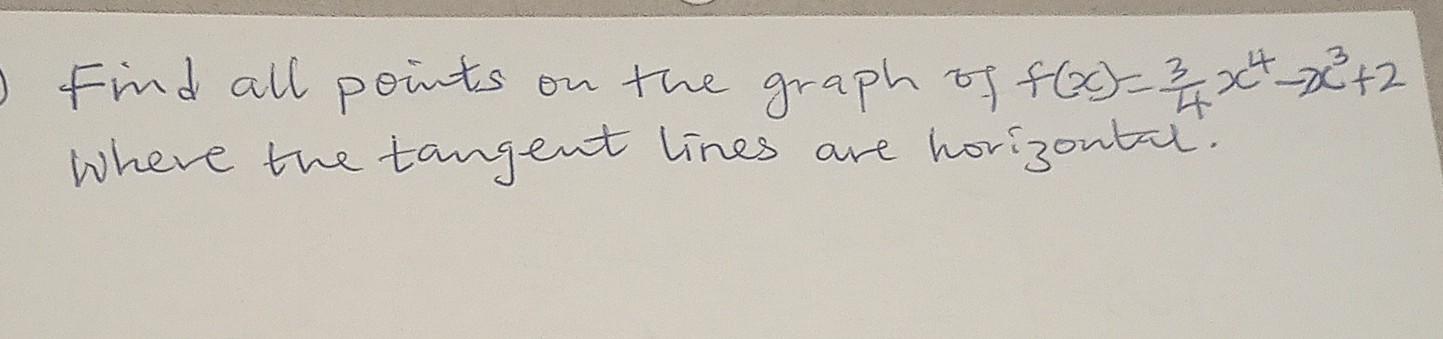 ) Find all points on the graph of f(x)=3/4 x⁴-x³+2
Where the tangent lines are horizontal.